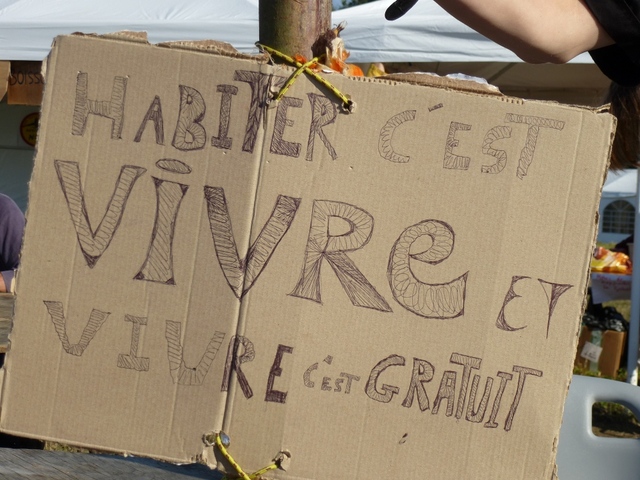 HABITER C'EST
ViVRe ET
VIVRE C'EST GRATUIT